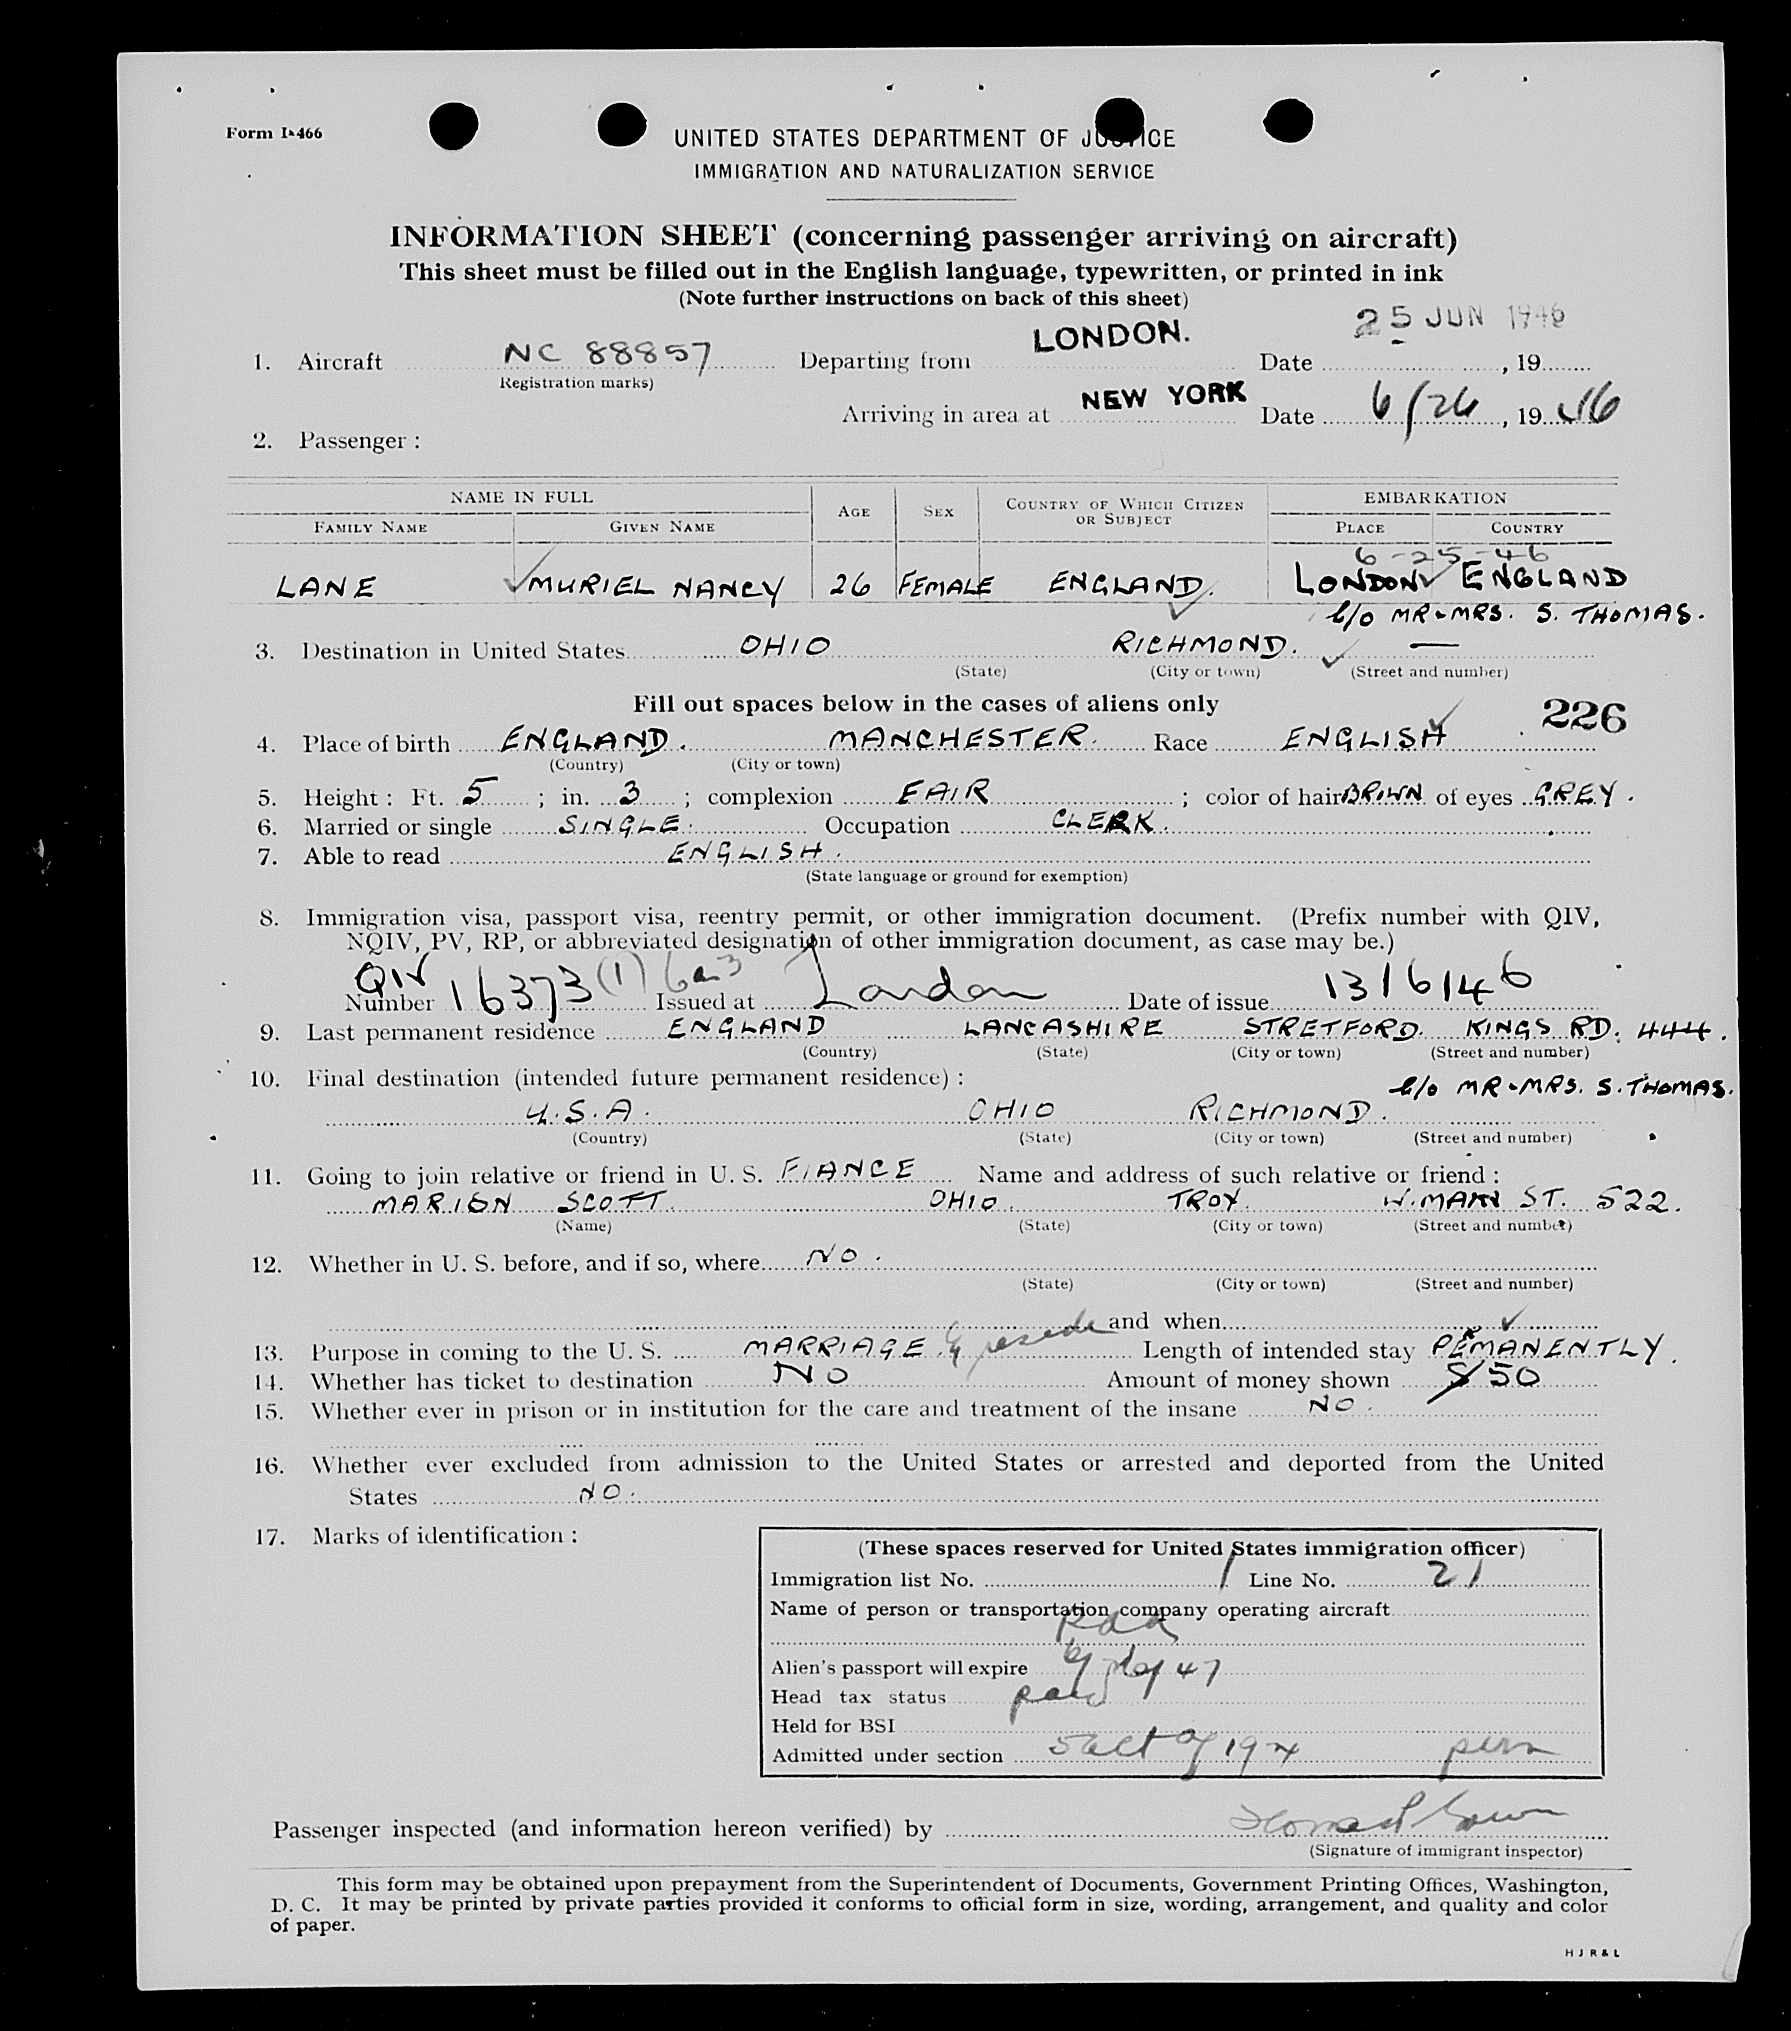 Form I-466
UNITED STATES DEPARTMENT OF JUSTICE
IMMIGRATION AND NATURALIZATION SERVICE
INFORMATION SHEET (concerning passenger arriving on aircraft)
This sheet must be filled out in the English language, typewritten, or printed in ink
(Note further instructions on back of this sheet)
1. Aircraft NC 88857 Departing from LONDON. Date 25 JUN 1946, 19
Registration marks)
Arriving in area at NEW YORK Date 6/26, 19 46
2. Passenger :
NAME IN FULL AGE SEX COUNTRY OF WHICH CITIZEN OR SUBJECT EMBARKATION
FAMILY NAME GIVEN NAME PLACE COUNTRY
6-25-46
LANE MURIEL NANCY 26 FEMALE ENGLAND. LONDON ENGLAND
c/o MR & MRS. S. THOMAS.
3. Destination in United States OHIO RICHMOND. —
(State) (City or town) (Street and number)
Fill out spaces below in the cases of aliens only
226
4. Place of birth ENGLAND. MANCHESTER. Race ENGLISH
(Country) (City or town)
5. Height : Ft. 5 ; in. 3 ; complexion FAIR ; color of hair BROWN of eyes GREY.
6. Married or single SINGLE. Occupation CLERK.
7. Able to read ENGLISH.
(State language or ground for exemption)
8. Immigration visa, passport visa, reentry permit, or other immigration document. (Prefix number with QIV,
NQIV, PV, RP, or abbreviated designation of other immigration document, as case may be.)
QIV
Number 16373 (1) 6a3 Issued at London Date of issue 13/6/46
9. Last permanent residence ENGLAND LANCASHIRE STRETFORD. KINGS RD. 444.
(Country) (State) (City or town) (Street and number)
10. Final destination (intended future permanent residence) :
c/o MR & MRS. S. THOMAS.
U.S.A. OHIO RICHMOND.
(Country) (State) (City or town) (Street and number)
11. Going to join relative or friend in U. S. FIANCE Name and address of such relative or friend :
MARION SCOTT. OHIO. TROY. W. MAIN ST. 522.
(Name) (State) (City or town) (Street and number)
12. Whether in U. S. before, and if so, where NO.
(State) (City or town) (Street and number)
and when
13. Purpose in coming to the U. S. MARRIAGE. & reside Length of intended stay PERMANENTLY.
14. Whether has ticket to destination NO Amount of money shown $50
15. Whether ever in prison or in institution for the care and treatment of the insane NO.
16. Whether ever excluded from admission to the United States or arrested and deported from the United
States NO.
17. Marks of identification :
(These spaces reserved for United States immigration officer)
Immigration list No. 1 Line No. 21
Name of person or transportation company operating aircraft
Alien's passport will expire 47
Head tax status paid
Held for BSI
Admitted under section 5 act of 1924 perm
Passenger inspected (and information hereon verified) by
(Signature of immigrant inspector)
This form may be obtained upon prepayment from the Superintendent of Documents, Government Printing Offices, Washington,
D. C. It may be printed by private parties provided it conforms to official form in size, wording, arrangement, and quality and color
of paper.
H J R & L